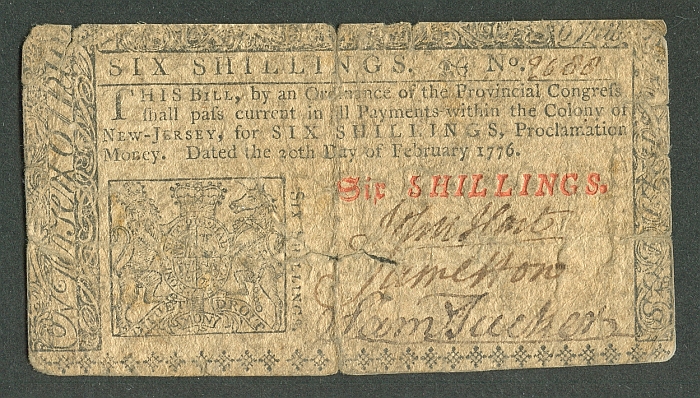 SIX SHILLINGS. No. 9688
THIS BILL, by an Ordinance of the Provincial Congreſs
ſhall paſs current in all Payments within the Colony of
NEW-JERSEY, for SIX SHILLINGS, Proclamation
Money. Dated the 20th Day of February 1776.
Six SHILLINGS.
SIX SHILLINGS
John Hart
Sam Tucker